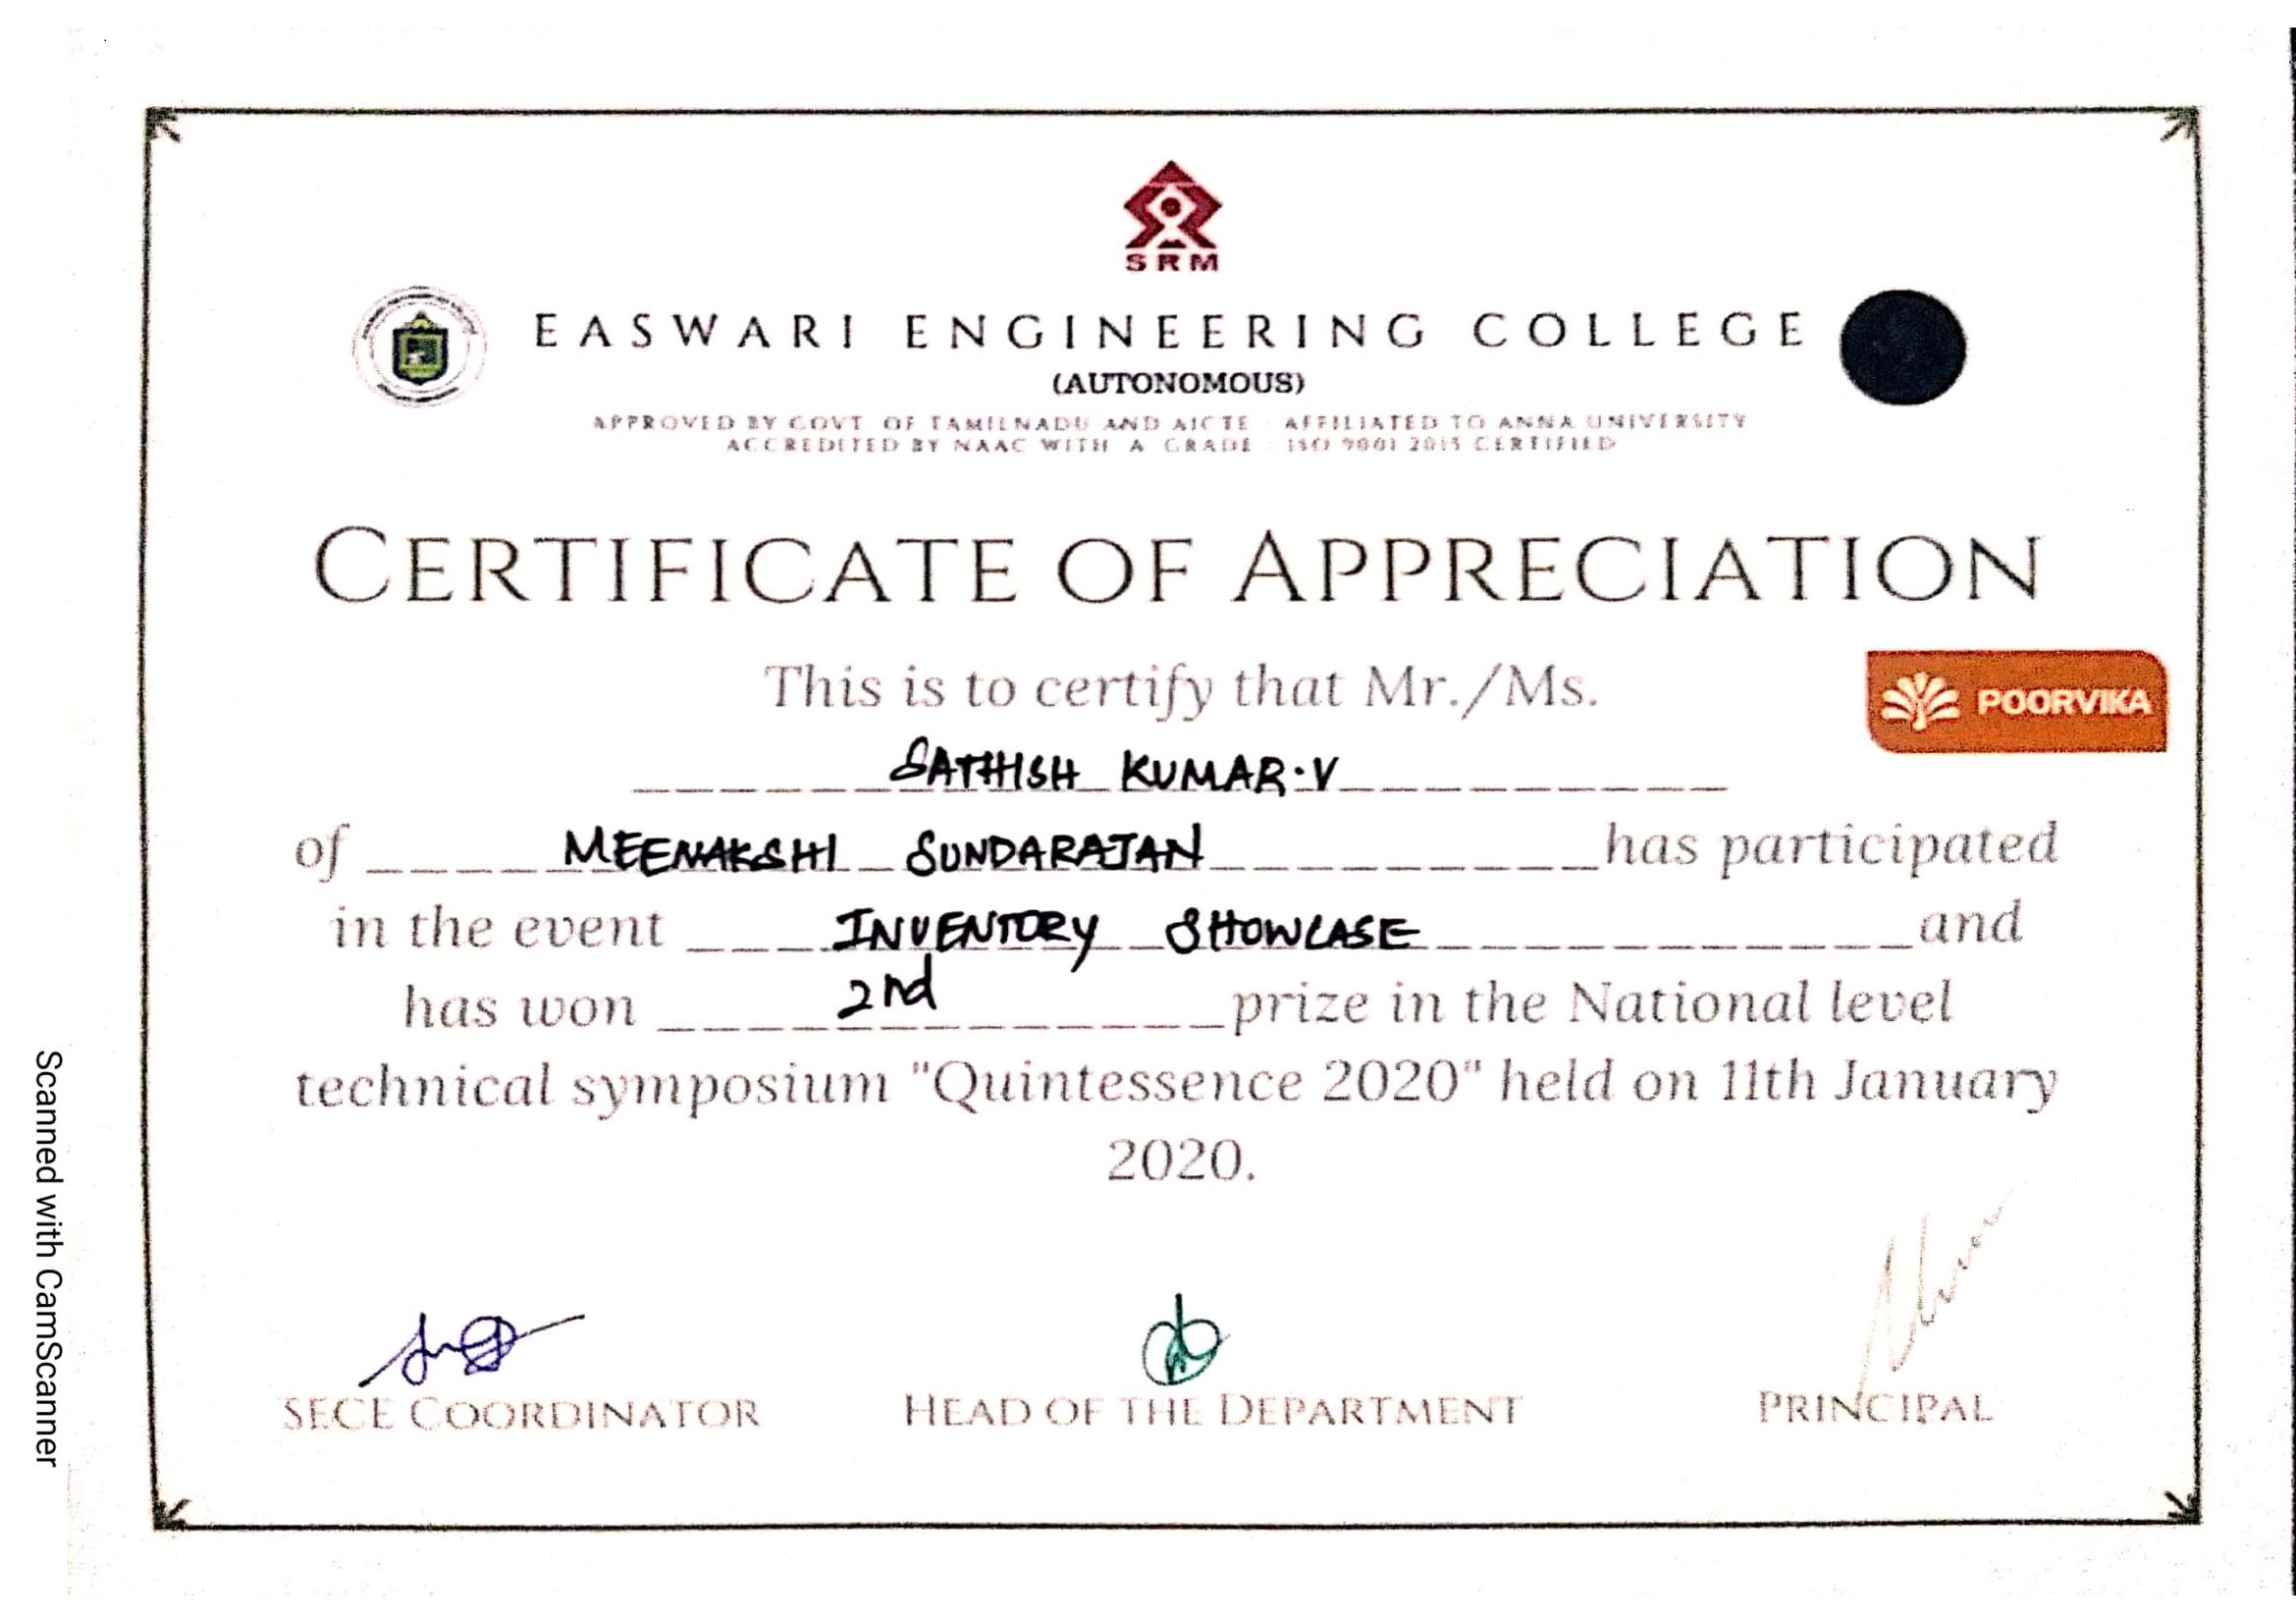 SRM
EASWARI ENGINEERING COLLEGE
(AUTONOMOUS)
APPROVED BY GOVT OF TAMILNADU AND AICTE AFFILIATED TO ANNA UNIVERSITY
ACCREDITED BY NAAC WITH A GRADE ISO 9001 2015 CERTIFIED
CERTIFICATE OF APPRECIATION
This is to certify that Mr./Ms.
POORVIKA
SATHISH KUMAR.V
of MEENAKSHI SUNDARAJAN has participated
in the event INVENTORY SHOWCASE and
has won 2nd prize in the National level
technical symposium "Quintessence 2020" held on 11th January
2020.
SECE COORDINATOR HEAD OF THE DEPARTMENT PRINCIPAL
Scanned with CamScanner